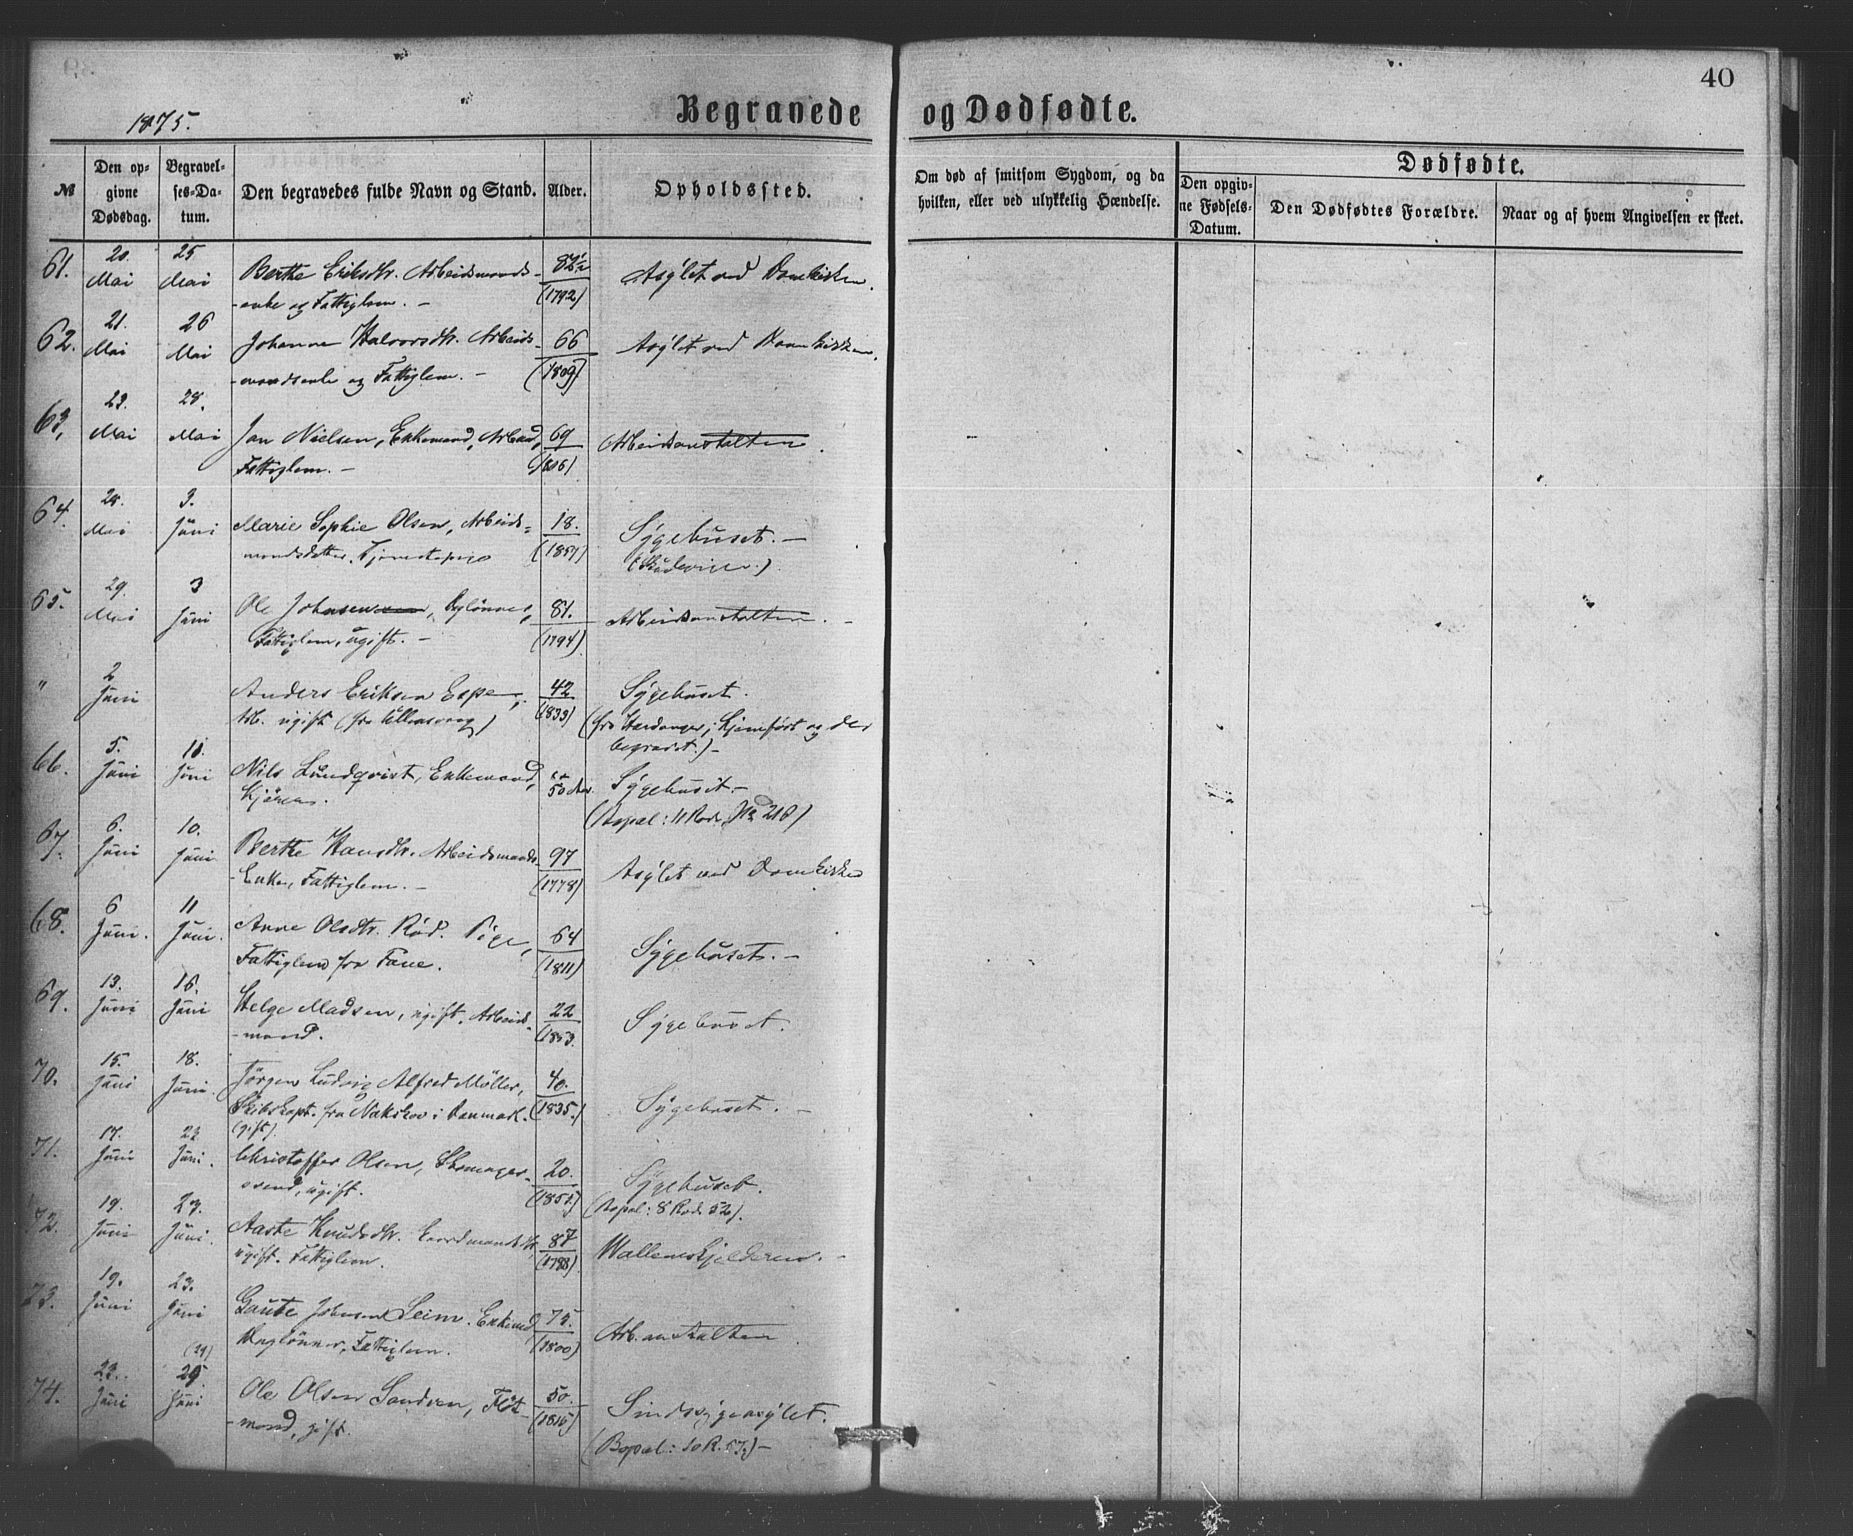 40
Begravede og Dødfødte.
1875.
№
Den op-
givne
Dødsdag.
Begravel-
ses-Da-
tum.
Den begravedes fulde Navn og Stand.
Alder.
Opholdssted.
Om død af smitsom Sygdom, og da
hvilken, eller ved ulykkelig Hændelse.
Dødfødte.
Den opgiv-
ne Fødsels-
Datum.
Den Dødfødtes Forældre.
Naar og af hvem Angivelsen er skeet.
61. 20. Mai 25 Mai Berthe Eriksdtr. Arbeidsmands- 82½ Asylet ved Domkirken.
-enke og Fattiglem. - (1792)
62. 21. Mai 26 Mai Johanne Halvorsdtr. Arbeids- 66 Asylet ved Domkirken.
-mandsenke og Fattiglem. - (1809)
63, 23. Mai 28. Mai Jan Nielsen, Enkemand, 69 Arbeidsanstalten.
Fattiglem. - (1806)
64. Mai 3. Juni Marie Sophie Olsen, Arbeids- 18. Sygehuset. -
mandsdatter, Tjenestepige
65. 29. Mai 3 Juni Ole Johnsen, Røglønner, 81. Arbeidsanstalten. -
Fattiglem, ugift. - (1794)
" 2 Juni Anders Eriksen Espe, 42 Sygehuset.
Arb. ugift (fra Ullensvang) (1833) (fra Hardanger, hjemført og der
begravet.) -
66. 5. Juni 11. Juni Nils Lundqvist, Enkemand, 50 Aar. Sygehuset -
(Bopæl: 11 Rode No 218)
67. 6. Juni 10. Juni Berthe Hansdtr. Arbeidsmands- 97 Asylet ved Domkirken
-Enke, Fattiglem. - (1778)
68. 6 Juni. 11 Juni. Anne Olsdtr. Rød. Pige, 64 Sygehuset. -
Fattiglem fra Fane. (1811)
69. 13. Juni 16. Juni Helge Madsen, ugift, Arbeids- 22 Sygehuset.
-mand. (1853
70. 15. Juni 18. Juni. Jørgen Ludvig Alfred Møller, 40. Sygehuset. -
Skibskapt. fra Nakskov i Danmark. (1835.)
(gift).
71. 17. Juni Juni. Christoffer Olsen, Skomager- 20. Sygehuset.
svend, ugift. (1855) (Bopæl: 8 Rode 52).
72. 19. Juni 23. Juni. Aaste Knudsdtr. 87 Wallemskjelderen. -
ugift. Fattiglem. (1788)
73. 19. Juni 23. Juni Gaute Johnsen Seim. Enkemd 75. Arb.anstalten.
Røglønner, Fattiglem. (1800)
74. Juni 25. Juni Ole Olsen Sandven, Fløt- 50. Sindssygeasylet.
-mand, gift.